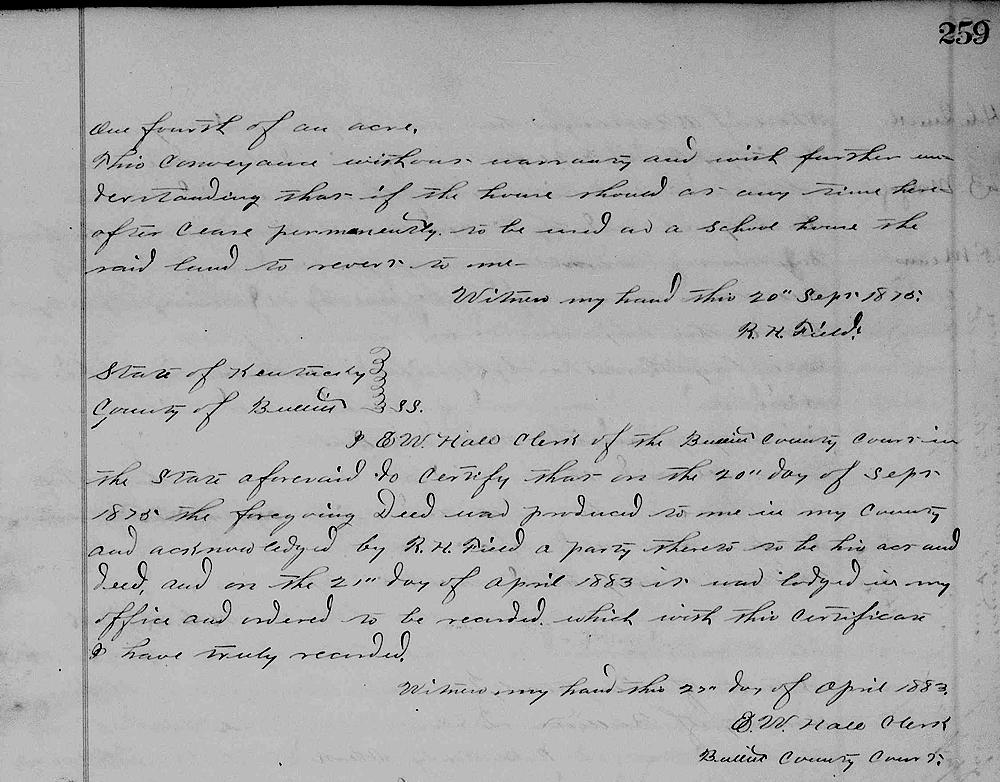 259
One fourth of an acre.
This Conveyance without warranty and with further un-
derstanding that if the house should at any time here
after Cease permanently to be used as a School house the
said land to revert to me
Witness my hand this 20" Sept 1875.
R. H. Field.
State of Kentucky
County of Bullitt SS.
I W. Hall Clerk of the Bullitt County Court in
the State aforesaid do Certify that on the 20" day of Sept
1875 the foregoing Deed was produced to me in my County
and acknowledged by R. H. Field a party thereto to be his act and
deed, and on the 21st day of April 1883 it was lodged in my
office and ordered to be recorded. which with this Certificate
I have truly recorded.
Witness my hand this day of April 1883.
W. Hall Clerk
Bullitt County Court.